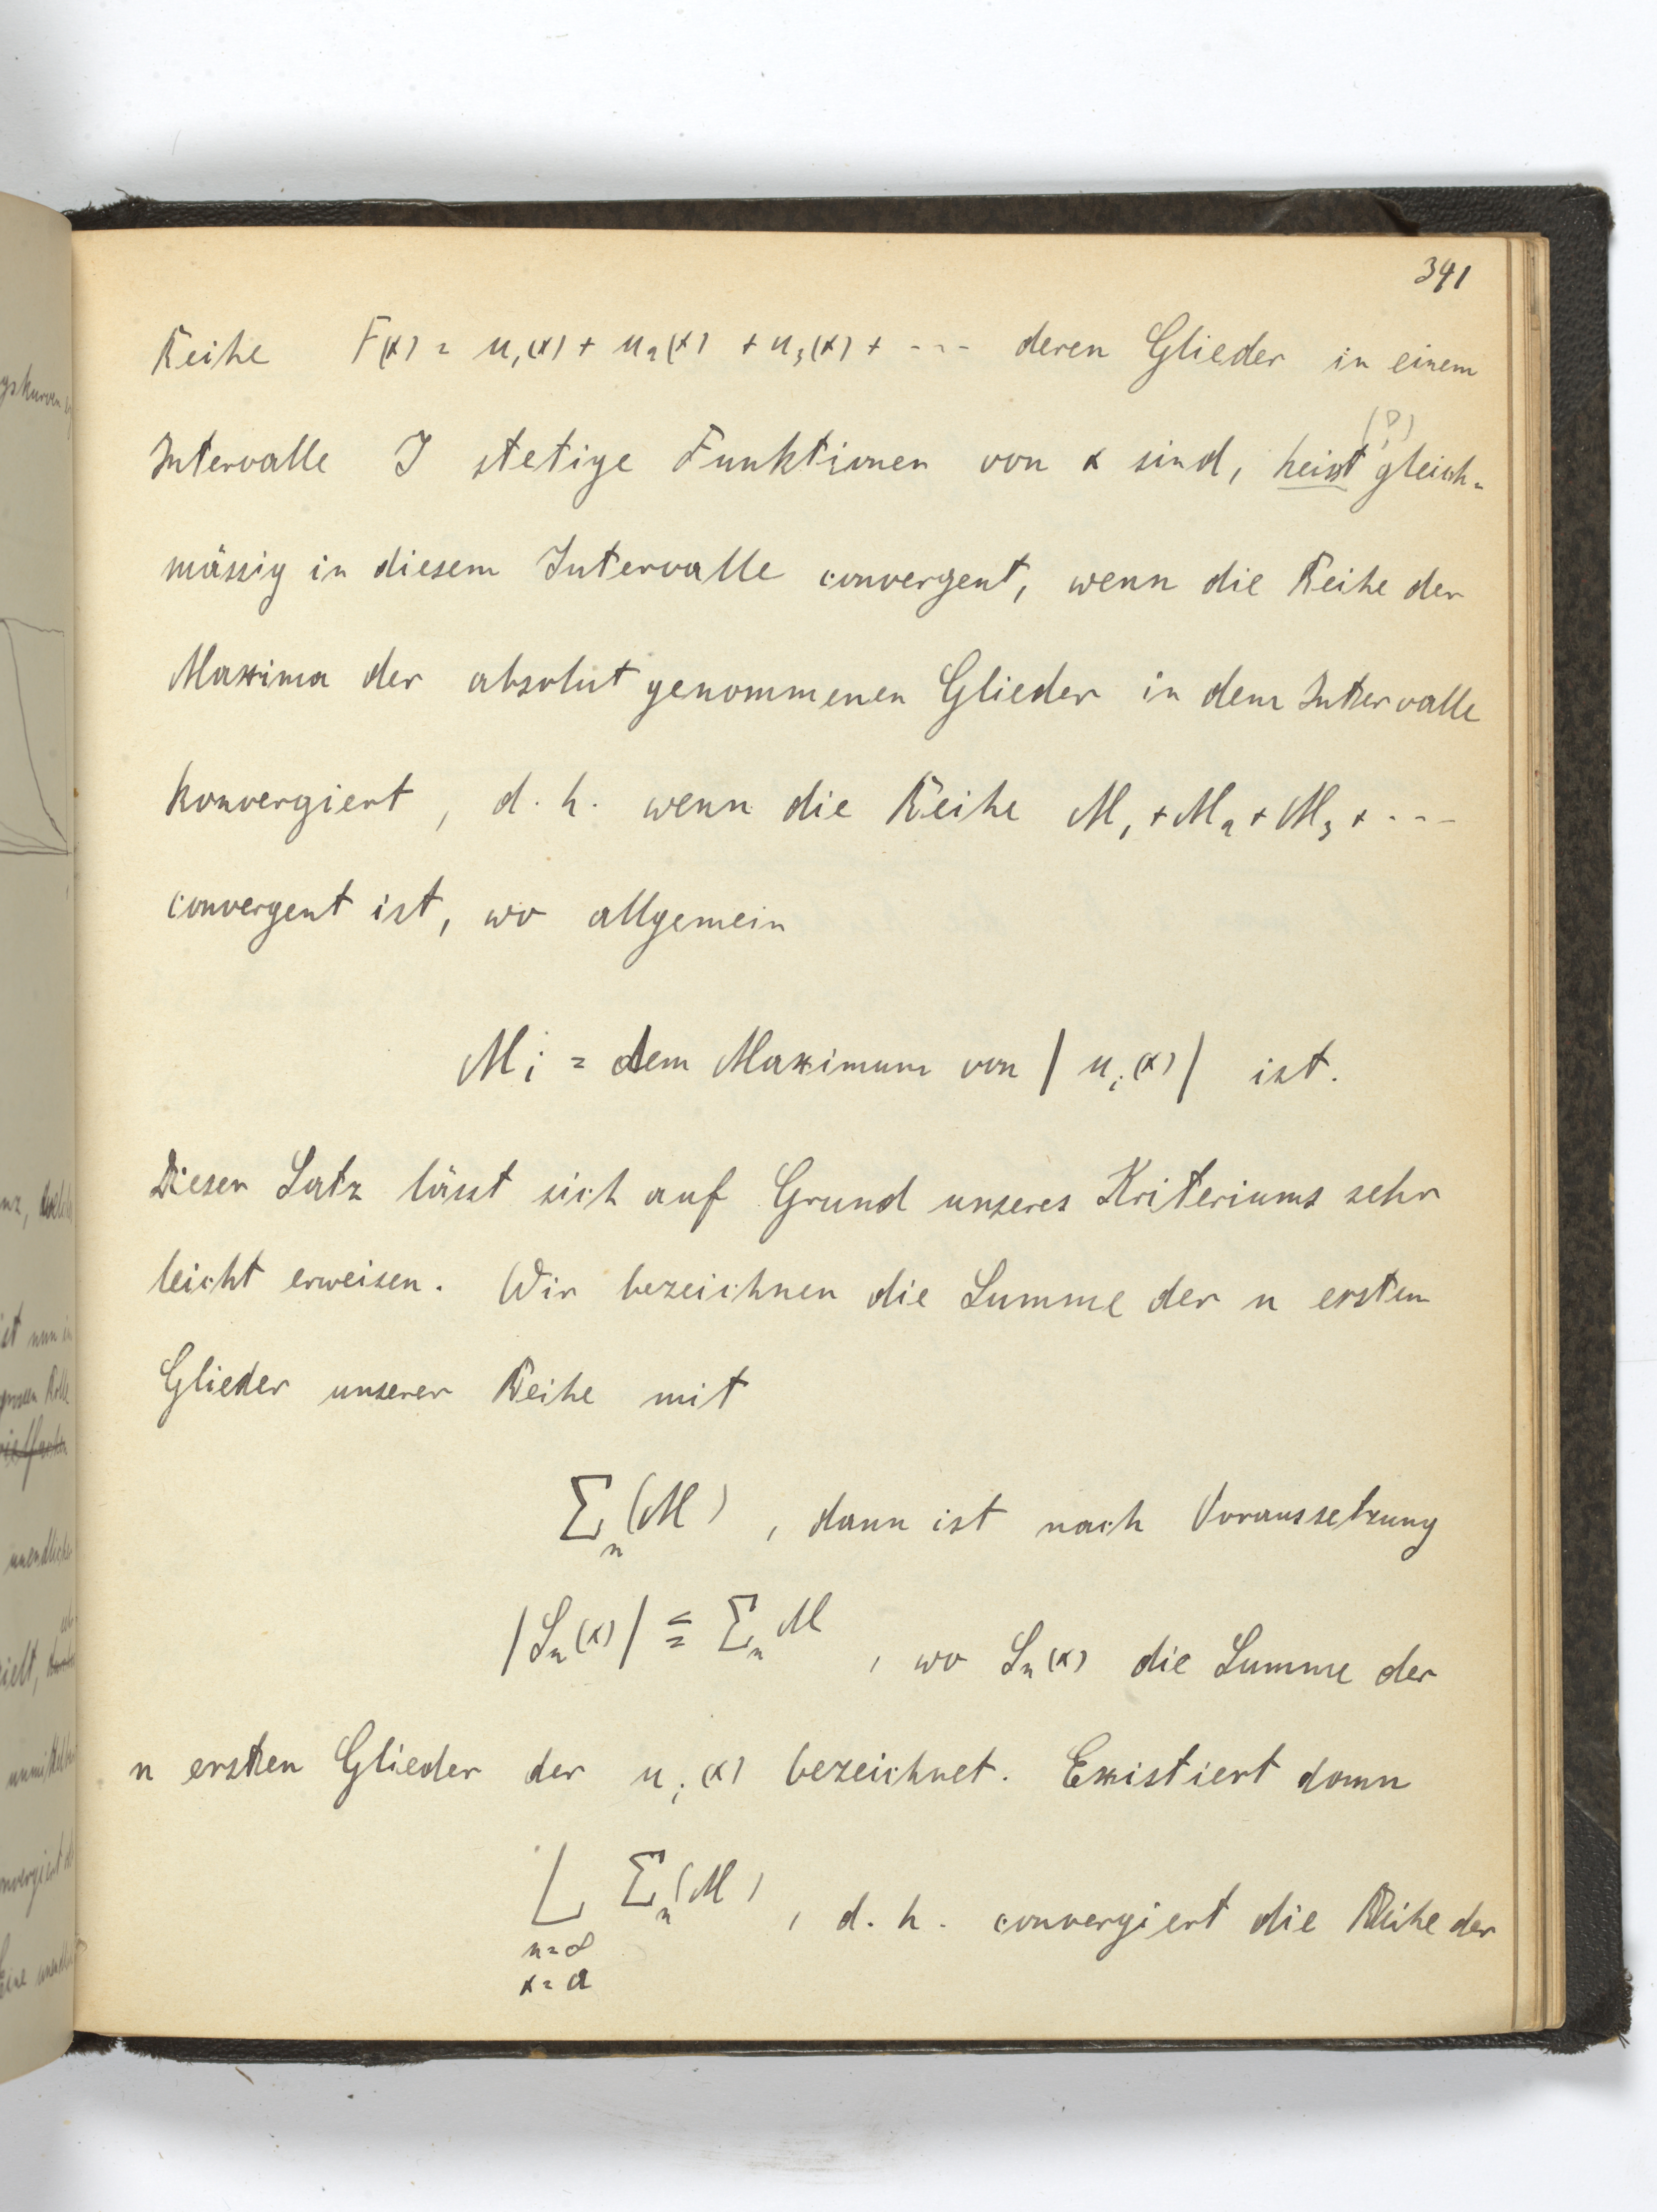 341
Reihe F(x) = u₁(x) + u₂(x) + u₃(x) + --- deren Glieder in einem
(?)
Intervalle J stetige Funktionen von x sind, heisst gleich=
mässig in diesem Intervalle convergent, wenn die Reihe der
Maxima der absolut genommenen Glieder in dem Intervalle
konvergiert, d. h. wenn die Reihe M₁ + M₂ + M₃ + ---
convergent ist, wo allgemein
Mᵢ = dem Maximum von | uᵢ(x) | ist.
Dieser Satz lässt sich auf Grund unseres Kriteriums sehr
leicht erweisen. Wir bezeichnen die Summe der n ersten
Glieder unserer Reihe mit
Σₙ (M) , dann ist nach Voraussetzung
|Sₙ(x)| ≦ Σₙ M , wo Sₙ(x) die Summe der
n ersten Glieder der uᵢ(x) bezeichnet. Existiert dann
L Σₙ(M) , d. h. convergiert die Reihe der
n=∞
x=a
unendliche